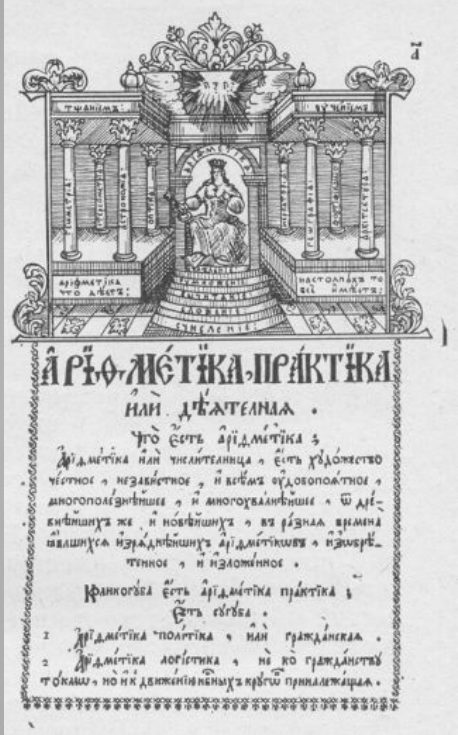 а҃
тщанїемъ:
ѹченїемъ
арїѳметїка
геометрїа:
астрономїа
оптїка
географїа:
архїтектѹра
арїѳметїка
что дѣетъ:
на столпахъ то
всё имѣетъ:
дѣленїе
счисленїе:
А҆РІ́Ѳ МЕ́ТІКА, ПРА́КТІКА
и҆лѝ дѣ́ѧтелнаѧ .
Что̀ є҆́сть а҆рїѳме́тїка ;
А҆рїѳме́тїка и҆лѝ числи́телница , є҆́сть хꙋдо́жество
че́стное , неза́вистное , и҆ всѣ̑мъ ᲂу҆добопоѧ́тное ,
многополе́знѣйшее , и҆ многохва́лнѣйшее , ѿ дре́-
внѣйшихъ же , и҆ новѣ́йшихъ , въ ра̑знаѧ времена̀
ꙗ҆́вльшихсѧ и҆зрѧ́днѣйшихъ а҆рїѳме́тїкѡвъ , и҆з̾ѡбрѣ́-
тенное , и҆ и҆зло́женное .
Коликогꙋ́ба є҆́сть а҆рїѳме́тїка пра́ктїка ;
Є҆́сть сꙋгꙋ́ба .
1 А҆рїѳме́тїка поли́тїка , и҆лѝ гражда́нскаѧ .
2 А҆рїѳме́тїка логі́стїка , не ко гражда́нствꙋ
то́кмѡ , но и҆ к движе́нїю нб҃ныхъ крꙋгѡ́въ принале́жащаѧ .